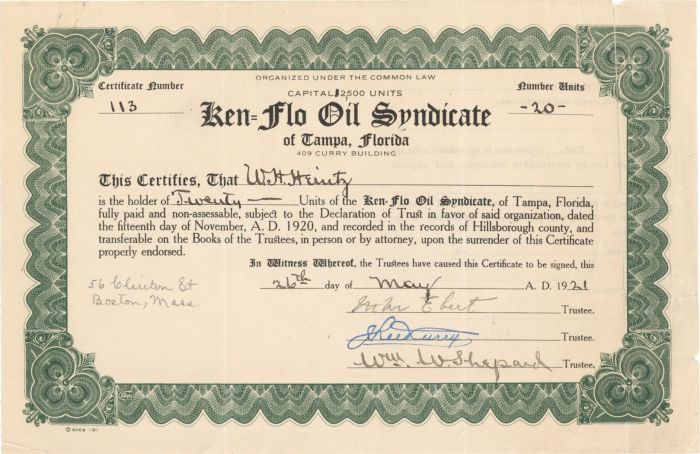 ORGANIZED UNDER THE COMMON LAW
Certificate Number
Number Units
CAPITAL 12,500 UNITS
113
-20-
Ken-Flo Oil Syndicate
of Tampa, Florida
409 CURRY BUILDING
This Certifies, That W.H. Heintz
is the holder of Twenty — Units of the Ken-Flo Oil Syndicate, of Tampa, Florida,
fully paid and non-assessable, subject to the Declaration of Trust in favor of said organization, dated
the fifteenth day of November, A. D. 1920, and recorded in the records of Hillsborough county, and
transferable on the Books of the Trustees, in person or by attorney, upon the surrender of this Certificate
properly endorsed.
In Witness Whereof, the Trustees have caused this Certificate to be signed, this
26th day of May A. D. 1921
56 Clinton St
Boston, Mass
Ebert Trustee.
Curry Trustee.
Wm. W. Shepard Trustee.
© GOES 181